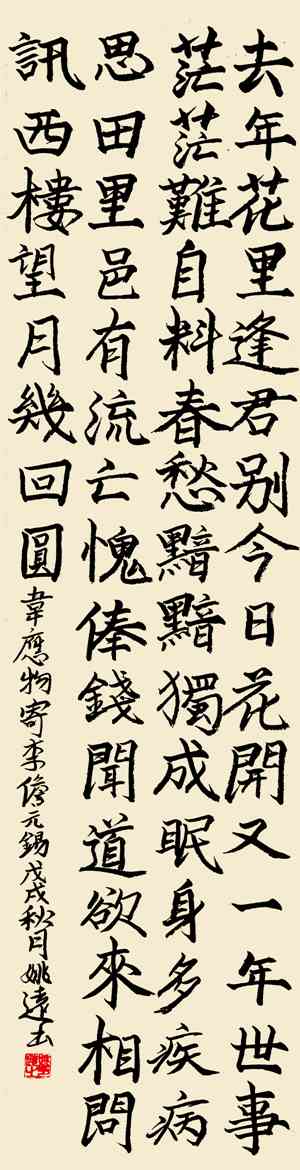 去年花里逢君别今日花開又一年世事
茫茫難自料春愁黯黯獨成眠身多疾病
思田里邑有流亡愧俸錢聞道欲來相問
訊西樓望月幾回圓
韋應物寄李儋元錫戊戌秋月姚遠书